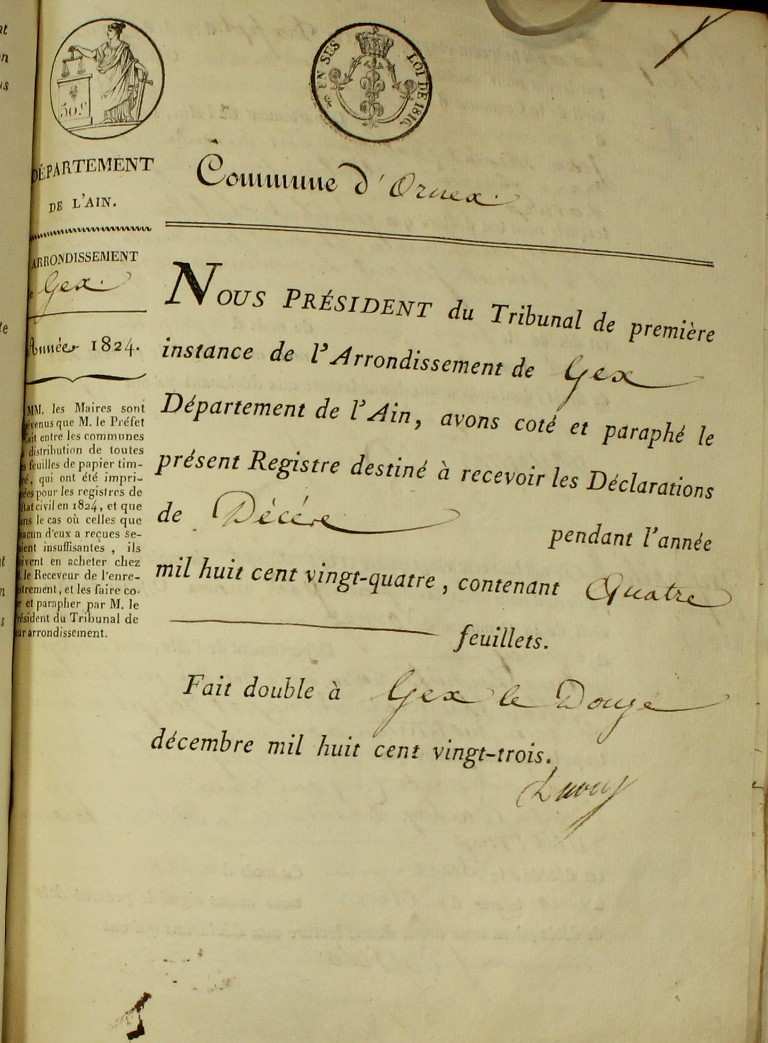 50 c.
EN SES
LOI DE 1816.
DÉPARTEMENT
DE L'AIN.
Commune d'Ornex.
ARRONDISSEMENT
Gex.
Année 1824.
MM. les Maires sont
venus que M. le Préfet
fait entre les communes
distribution de toutes
feuilles de papier tim-
qui ont été impri-
mées pour les registres de
état civil en 1824, et que
dans le cas où celles que
chacun d'eux a reçues se-
raient insuffisantes, ils
doivent en acheter chez
le Receveur de l'enre-
gistrement, et les faire co-
ter et parapher par M. le
Président du Tribunal de
leur arrondissement.
NOUS PRÉSIDENT du Tribunal de première
instance de l'Arrondissement de Gex
Département de l'Ain, avons coté et paraphé le
présent Registre destiné à recevoir les Déclarations
de Décére pendant l'année
mil huit cent vingt-quatre, contenant Quatre
feuillets.
Fait double à Gex le Douze
décembre mil huit cent vingt-trois.